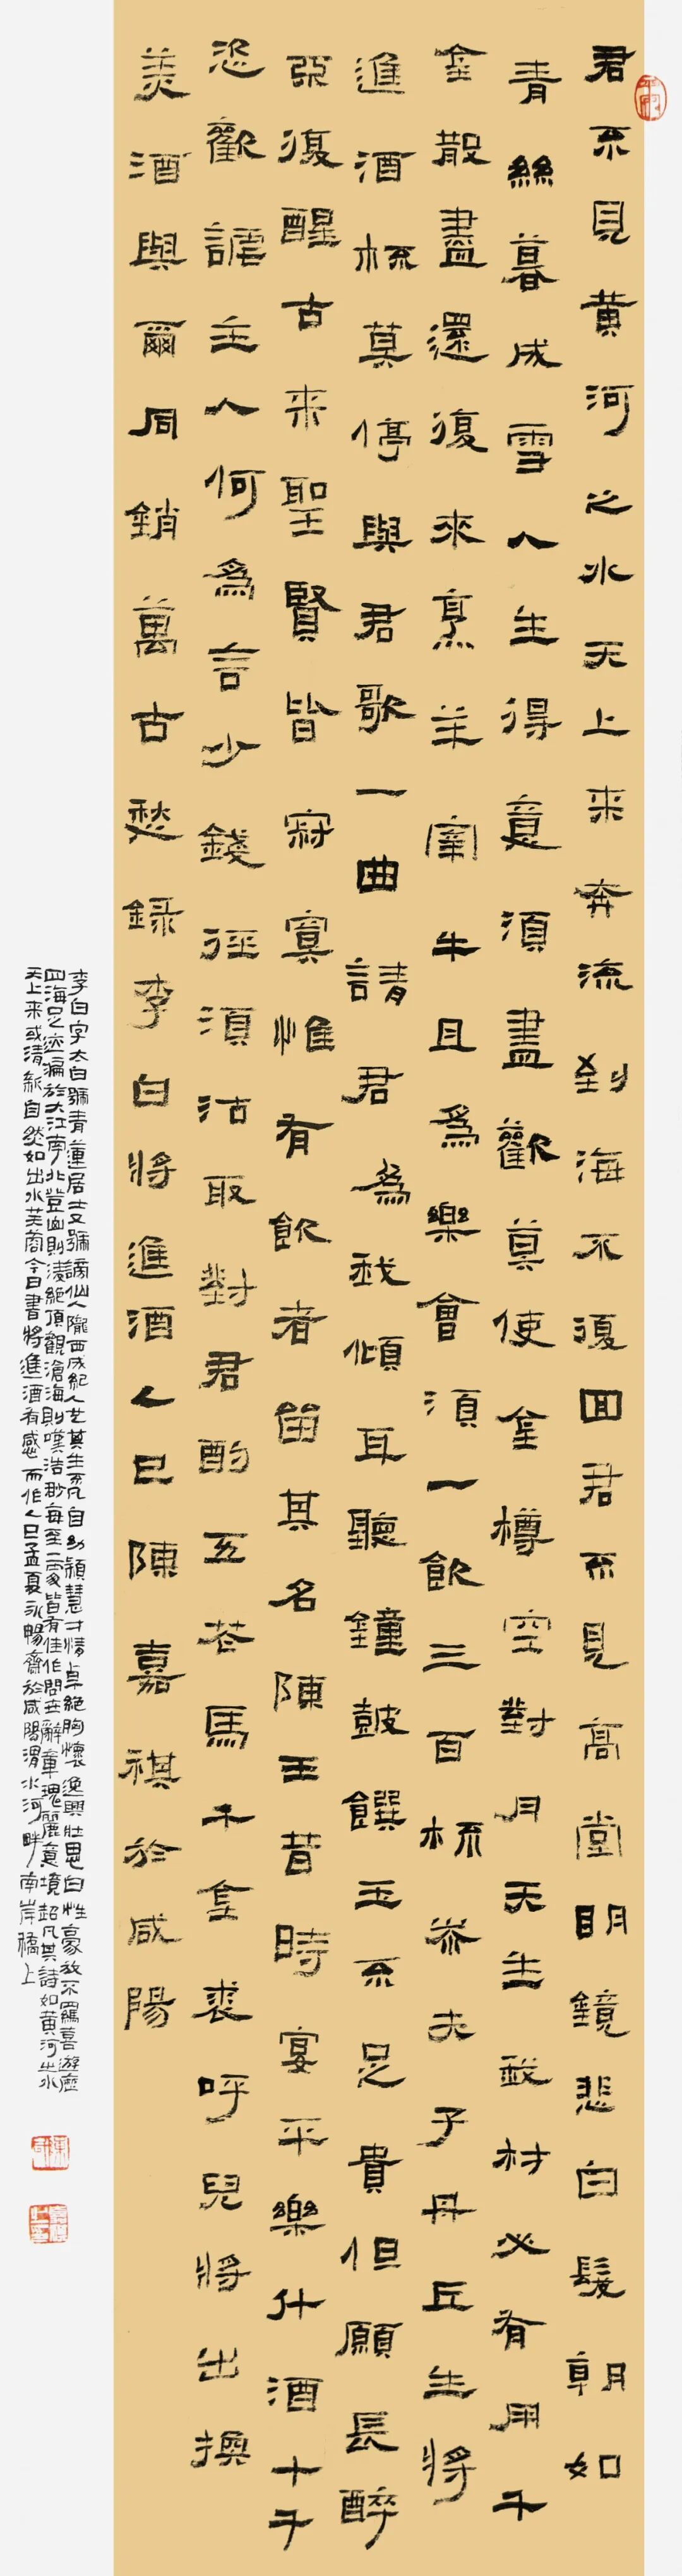 君不見黃河之水天上来奔流到海不復回君不見高堂明鏡悲白髮朝如
青絲暮成雪人生得意須盡歡莫使金樽空對月天生我材必有用千
金散盡還復來烹羊宰牛且為樂會須一飲三百杯岑夫子丹丘生將
進酒杯莫停與君歌一曲請君為我傾耳聽鐘鼓饌玉不足貴但願長醉
復醒古来聖賢皆寂寞惟有飲者留其名陳王昔時宴平樂斗酒十千
恣歡謔主人何為言少錢徑須沽取對君酌五花馬千金裘呼兒將出換
美酒與爾同銷萬古愁錄李白將進酒乙巳陳嘉祺於咸陽
李白字太白號青蓮居士又號謫仙人隴西成紀人也其生不凡自幼穎慧才情卓絕胸懷逸興壯思白性豪放不羈喜遊歷
四海足迹遍於大江南北登山則淩絕頂觀滄海則嘆浩渺每至一處皆有佳作問世辭章瑰麗意境超凡其詩如黃河之水
天上来或清新自然如出水芙蓉今日書將進酒有感而作乙巳孟夏永暢齋於咸陽渭水河畔南岸橋上